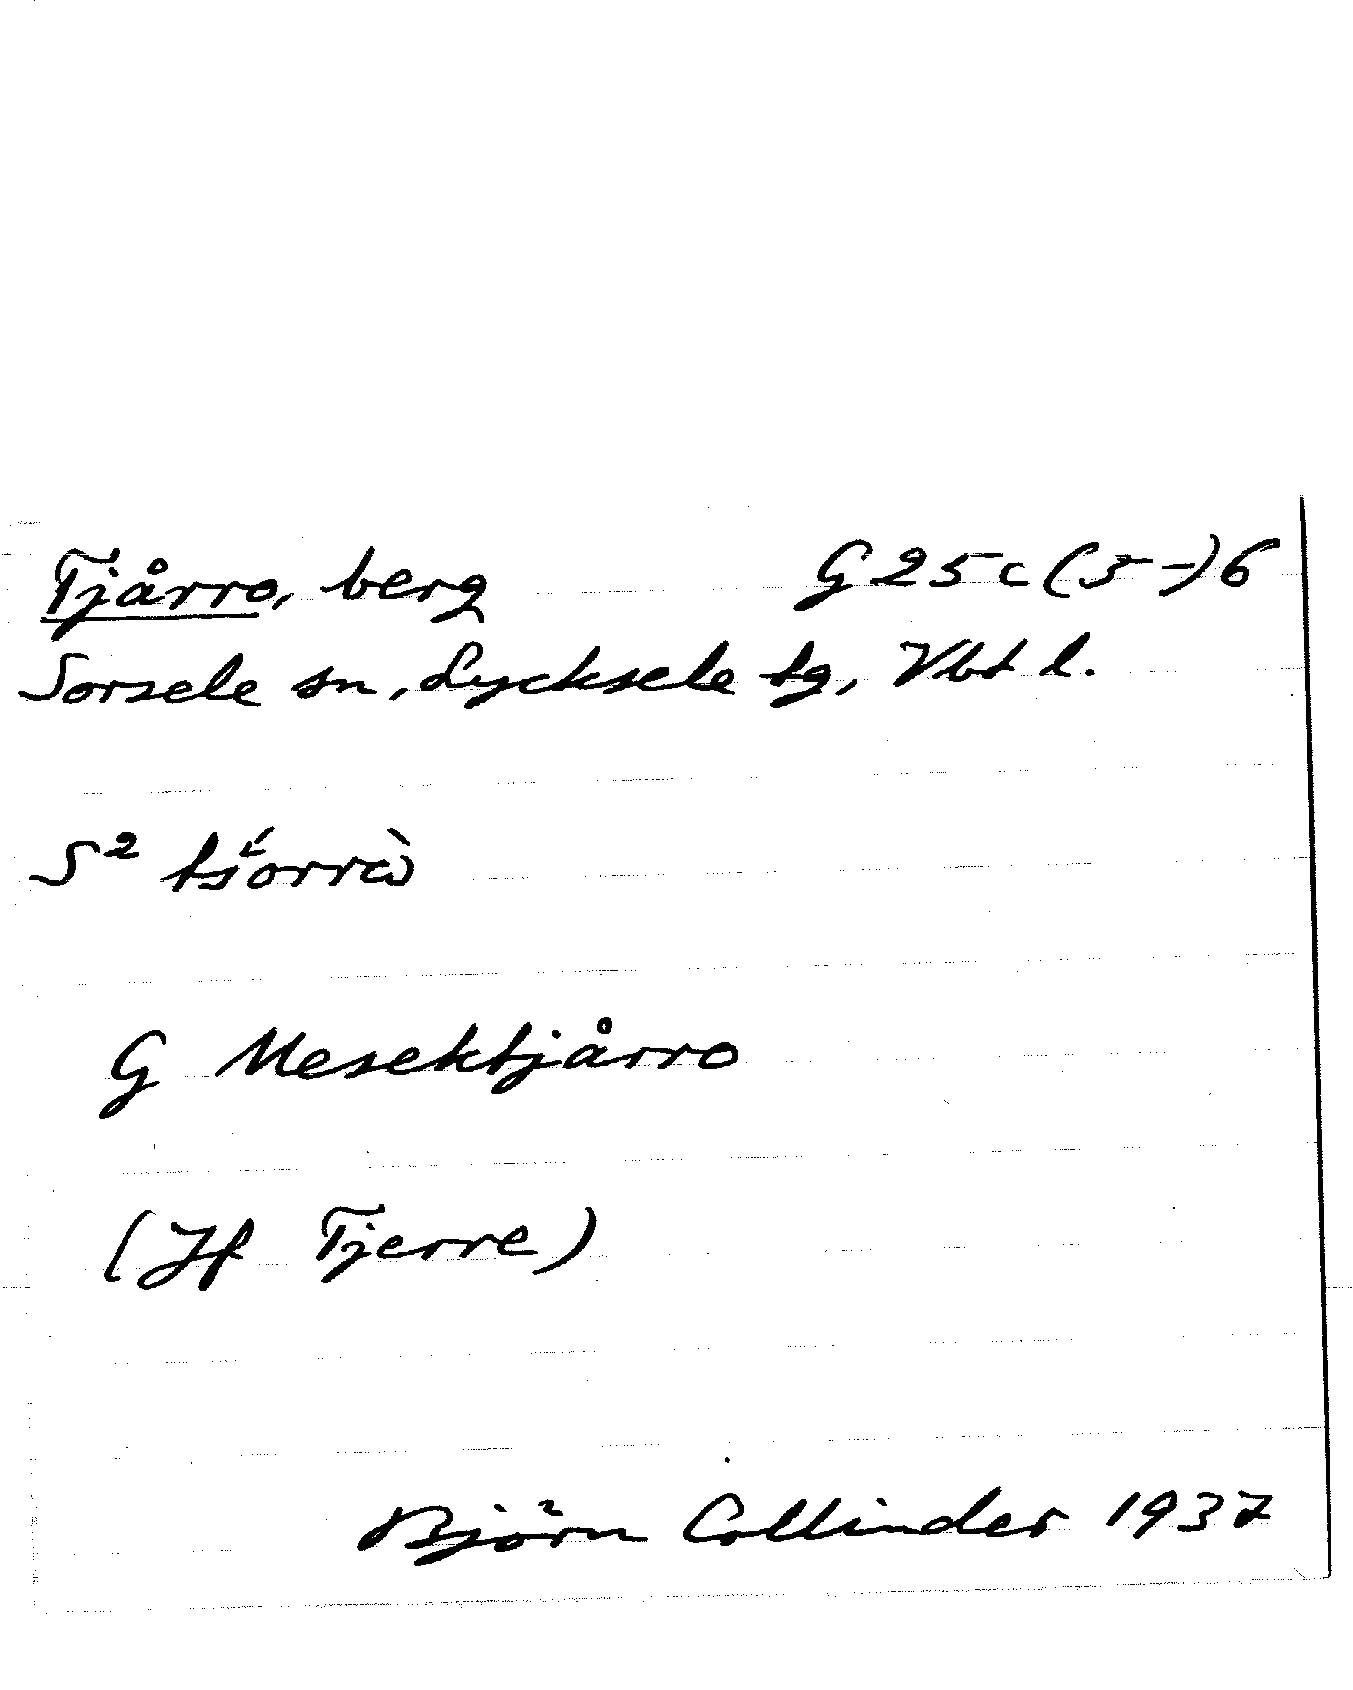 Tjårro, berg G25c(5-)6
Sorsele sn, Lycksele tg, Vbt l.
S²
G Mesektjårro
(Jf Tjerre)
Björn Collinder 1937